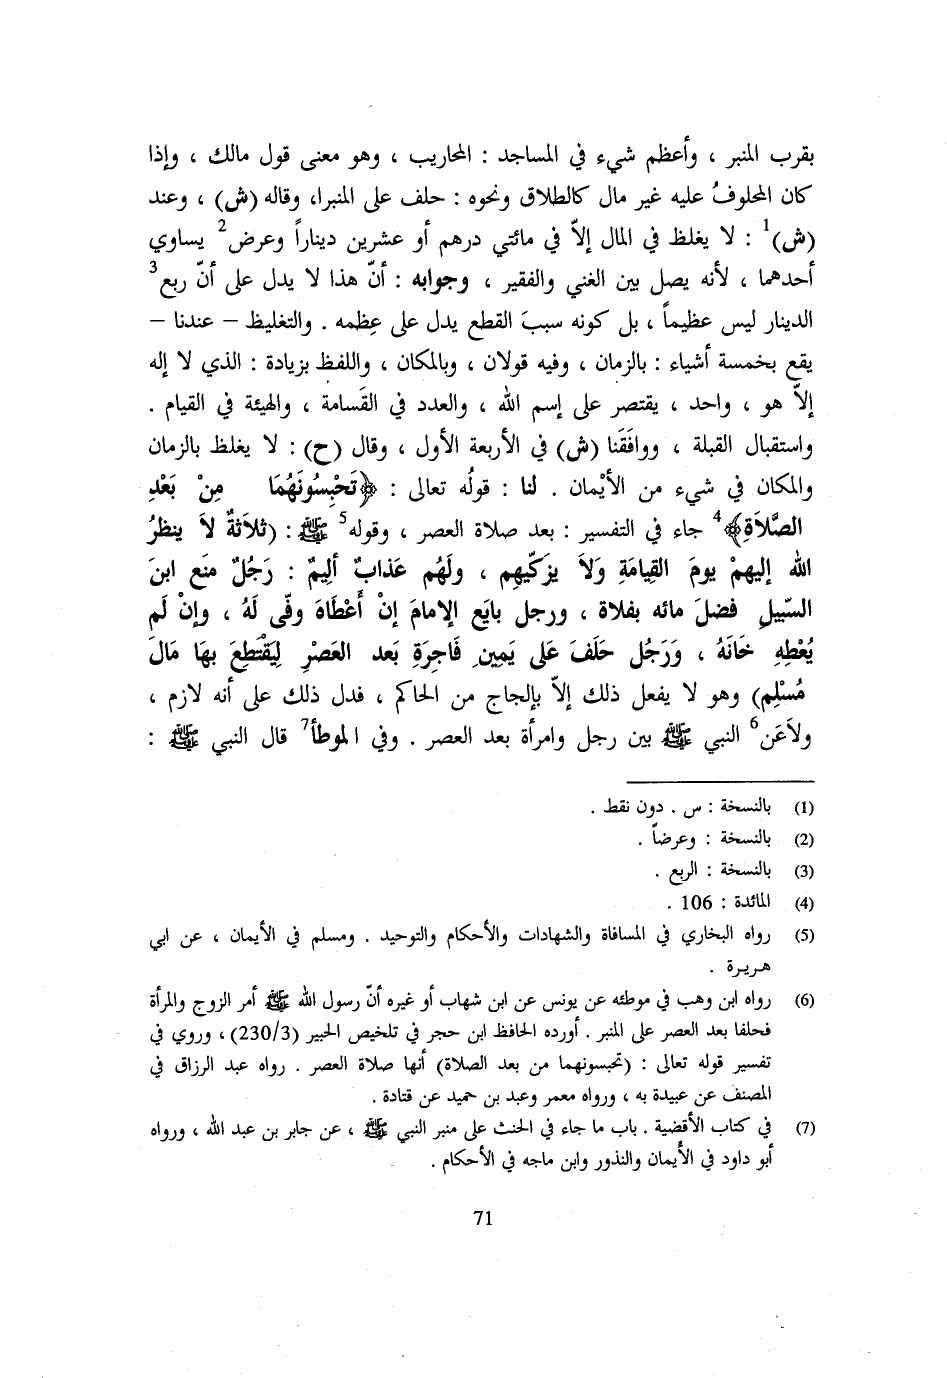 بقرب المنبر ، وأعظم شيء في المساجد : المحاريب ، وهو معنى قول مالك ، وإذا
كان المحلوفُ عليه غير مال كالطلاق ونحوه : حلف على المنبرا، وقاله (ش) ، وعند
(ش)1 : لا يغلظ في المال إلاّ في مائتي درهم أو عشرين ديناراً وعرض2 يساوي
أحدهما ، لأنه يصل بين الغني والفقير ، وجوابه : أنّ هذا لا يدل على أنّ ربع3
الدينار ليس عظيماً ، بل كونه سببَ القطع يدل على عِظمه . والتغليظ – عندنا –
يقع بخمسة أشياء : بالزمان ، وفيه قولان ، وبالمكان ، واللفظ بزيادة : الذي لا إله
إلاّ هو ، واحد ، يقتصر على إسم الله ، والعدد في القَسامة ، والهيئة في القيام .
واستقبال القبلة ، ووافَقَنا (ش) في الأربعة الأول ، وقال (ح) : لا يغلظ بالزمان
والمكان في شيء من الأيْمان . لنا : قولُه تعالى : ﴿تَحْبِسُونَهُمَا مِنْ بَعْدِ
الصَّلاَةِ﴾4 جاء في التفسير : بعد صلاة العصر ، وقوله5 ﷺ : (ثلاَثةٌ لاَ ينظرُ
الله إليهمْ يومَ القِيامَةِ وَلاَ يزَكّيهِم ، ولَهُم عَذابٌ أليمٌ : رَجُلٌ منَع ابنَ
السّبيلِ فضلَ مائه بفلاة ، ورجل بايَع الإمامَ إنْ أَعْطَاهَ وفّى لَهُ ، وإنْ لَم
يُعْطِهِ خَانَهُ ، وَرَجُل حلَفَ عَلى يَمِينٍ فَاجِرَةٍ بَعد العَصْرِ لِيَقْتطِعَ بهَا مَالَ
مُسْلِم) وهو لا يفعل ذلك إلاّ بإلجاج من الحاكم ، فدل ذلك على أنه لازم ،
ولاَعَن6 النبي ﷺ بين رجل وامرأة بعد العصر . وفي الموطأ7 قال النبي ﷺ :
(1) بالنسخة : س . دون نقط .
(2) بالنسخة : وعرضاً .
(3) بالنسخة : الربع .
(4) المائدة : 106 .
(5) رواه البخاري في المسافاة والشهادات والأحكام والتوحيد . ومسلم في الأيمان ، عن ابي
هريرة .
(6) رواه ابن وهب في موطئه عن يونس عن ابن شهاب أو غيره أنّ رسول الله ﷺ أمر الزوج والمرأة
فحلفا بعد العصر على المنبر . أورده الحافظ ابن حجر في تلخيص الحبير (230/3) ، وروي في
تفسير قوله تعالى : (تحبسونهما من بعد الصلاة) أنها صلاة العصر . رواه عبد الرزاق في
المصنف عن عبيدة به ، ورواه معمر وعبد بن حميد عن قتادة .
(7) في كتاب الأقضية . باب ما جاء في الحنث على منبر النبي ﷺ ، عن جابر بن عبد الله ، ورواه
أبو داود في الأَيمان والنذور وابن ماجه في الأحكام .
71